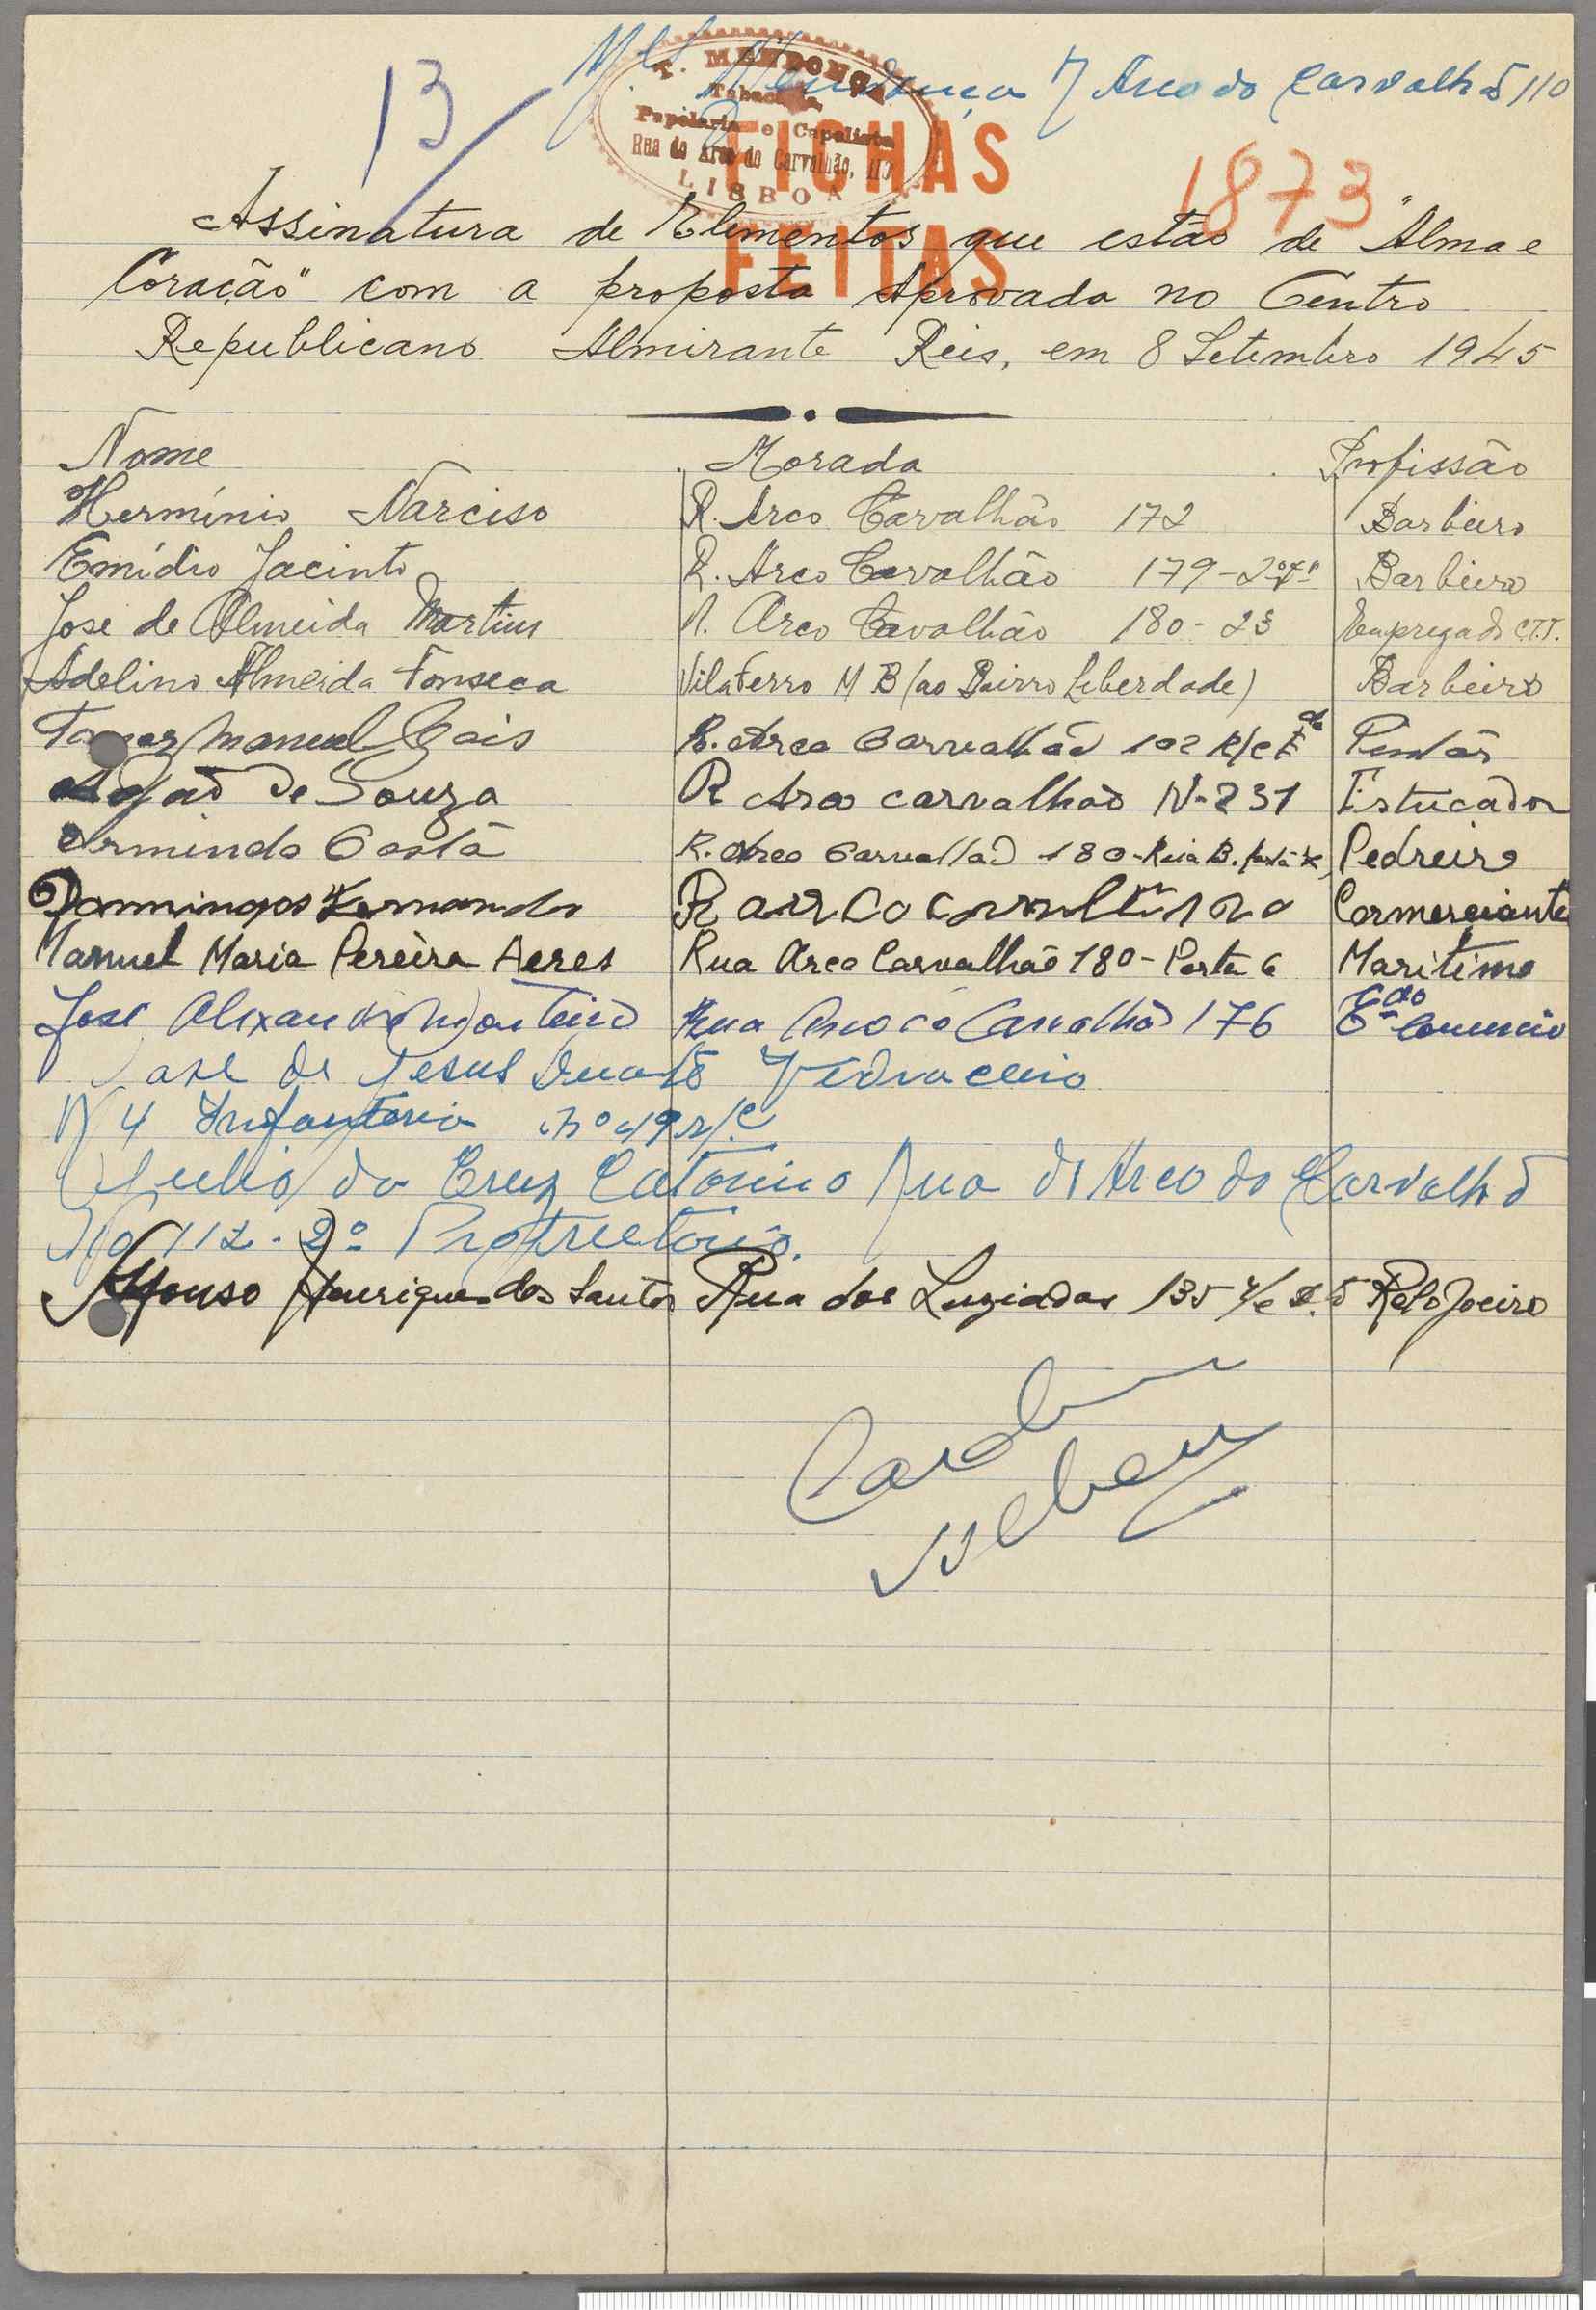 13/
Mendonça Arco do Carvalhão 110
T. MENDONÇA
Tabacaria
Papelaria e Capelista
Rua do Arco do Carvalhão, 110
LISBOA
FICHAS
FEITAS
1873
Assinatura de Elementos que estão de "Alma e
Coração" com a proposta Aprovada no Centro
Republicano Almirante Reis, em 8 Setembro 1945
Nome Morada Profissão
Hermínio Narciso R. Arco Carvalhão 172 Barbeiro
Emídio Jacinto R. Arco Carvalhão 179-2º Barbeiro
José de Almeida Martins R. Arco Cavalhão 180-23 Empregado C.T.T.
Adelino Almeida Fonseca Vila Ferro M B (ao Bairro Liberdade) Barbeiro
Manuel Gais R. Arco Carvalhão 102 R/c Pintor
de Souza R Arco carvalhão N-231 Estucador
Armindo Costa R. Arco Carvalhão 180-Rua B. Pedreiro
Domingos Fernandes R arco Cormerciante
Manuel Maria Pereira Aeres Rua Arco Carvalhão 180-Porta 6 Maritimo
José Alexandre Monteiro Rua Arco do Carvalhão 176 Edo Comercio
José de Jesus Duarte Vidraceiro
R 4 Infantaria nº 49 r/c
Julio da Cruz Catarino Rua do Arco do Carvalhão
Nº 112-2º
Afonso Henriques dos Santos Rua dos Luziadas 135 r/c Relojoeiro